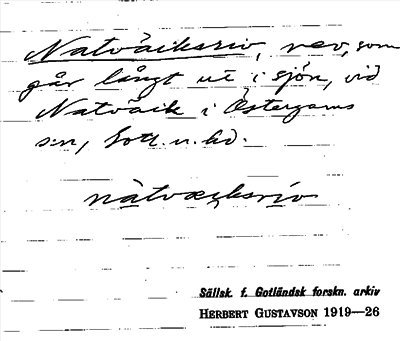 Natvåiksriv, rev, som
går långt ut i sjön, vid
Natvåik i Östergarns
s:n, Gotl. n. hd.
nàtvæiksrīv
Sällsk. f. Gotländsk forskn. arkiv
HERBERT GUSTAVSON 1919—26